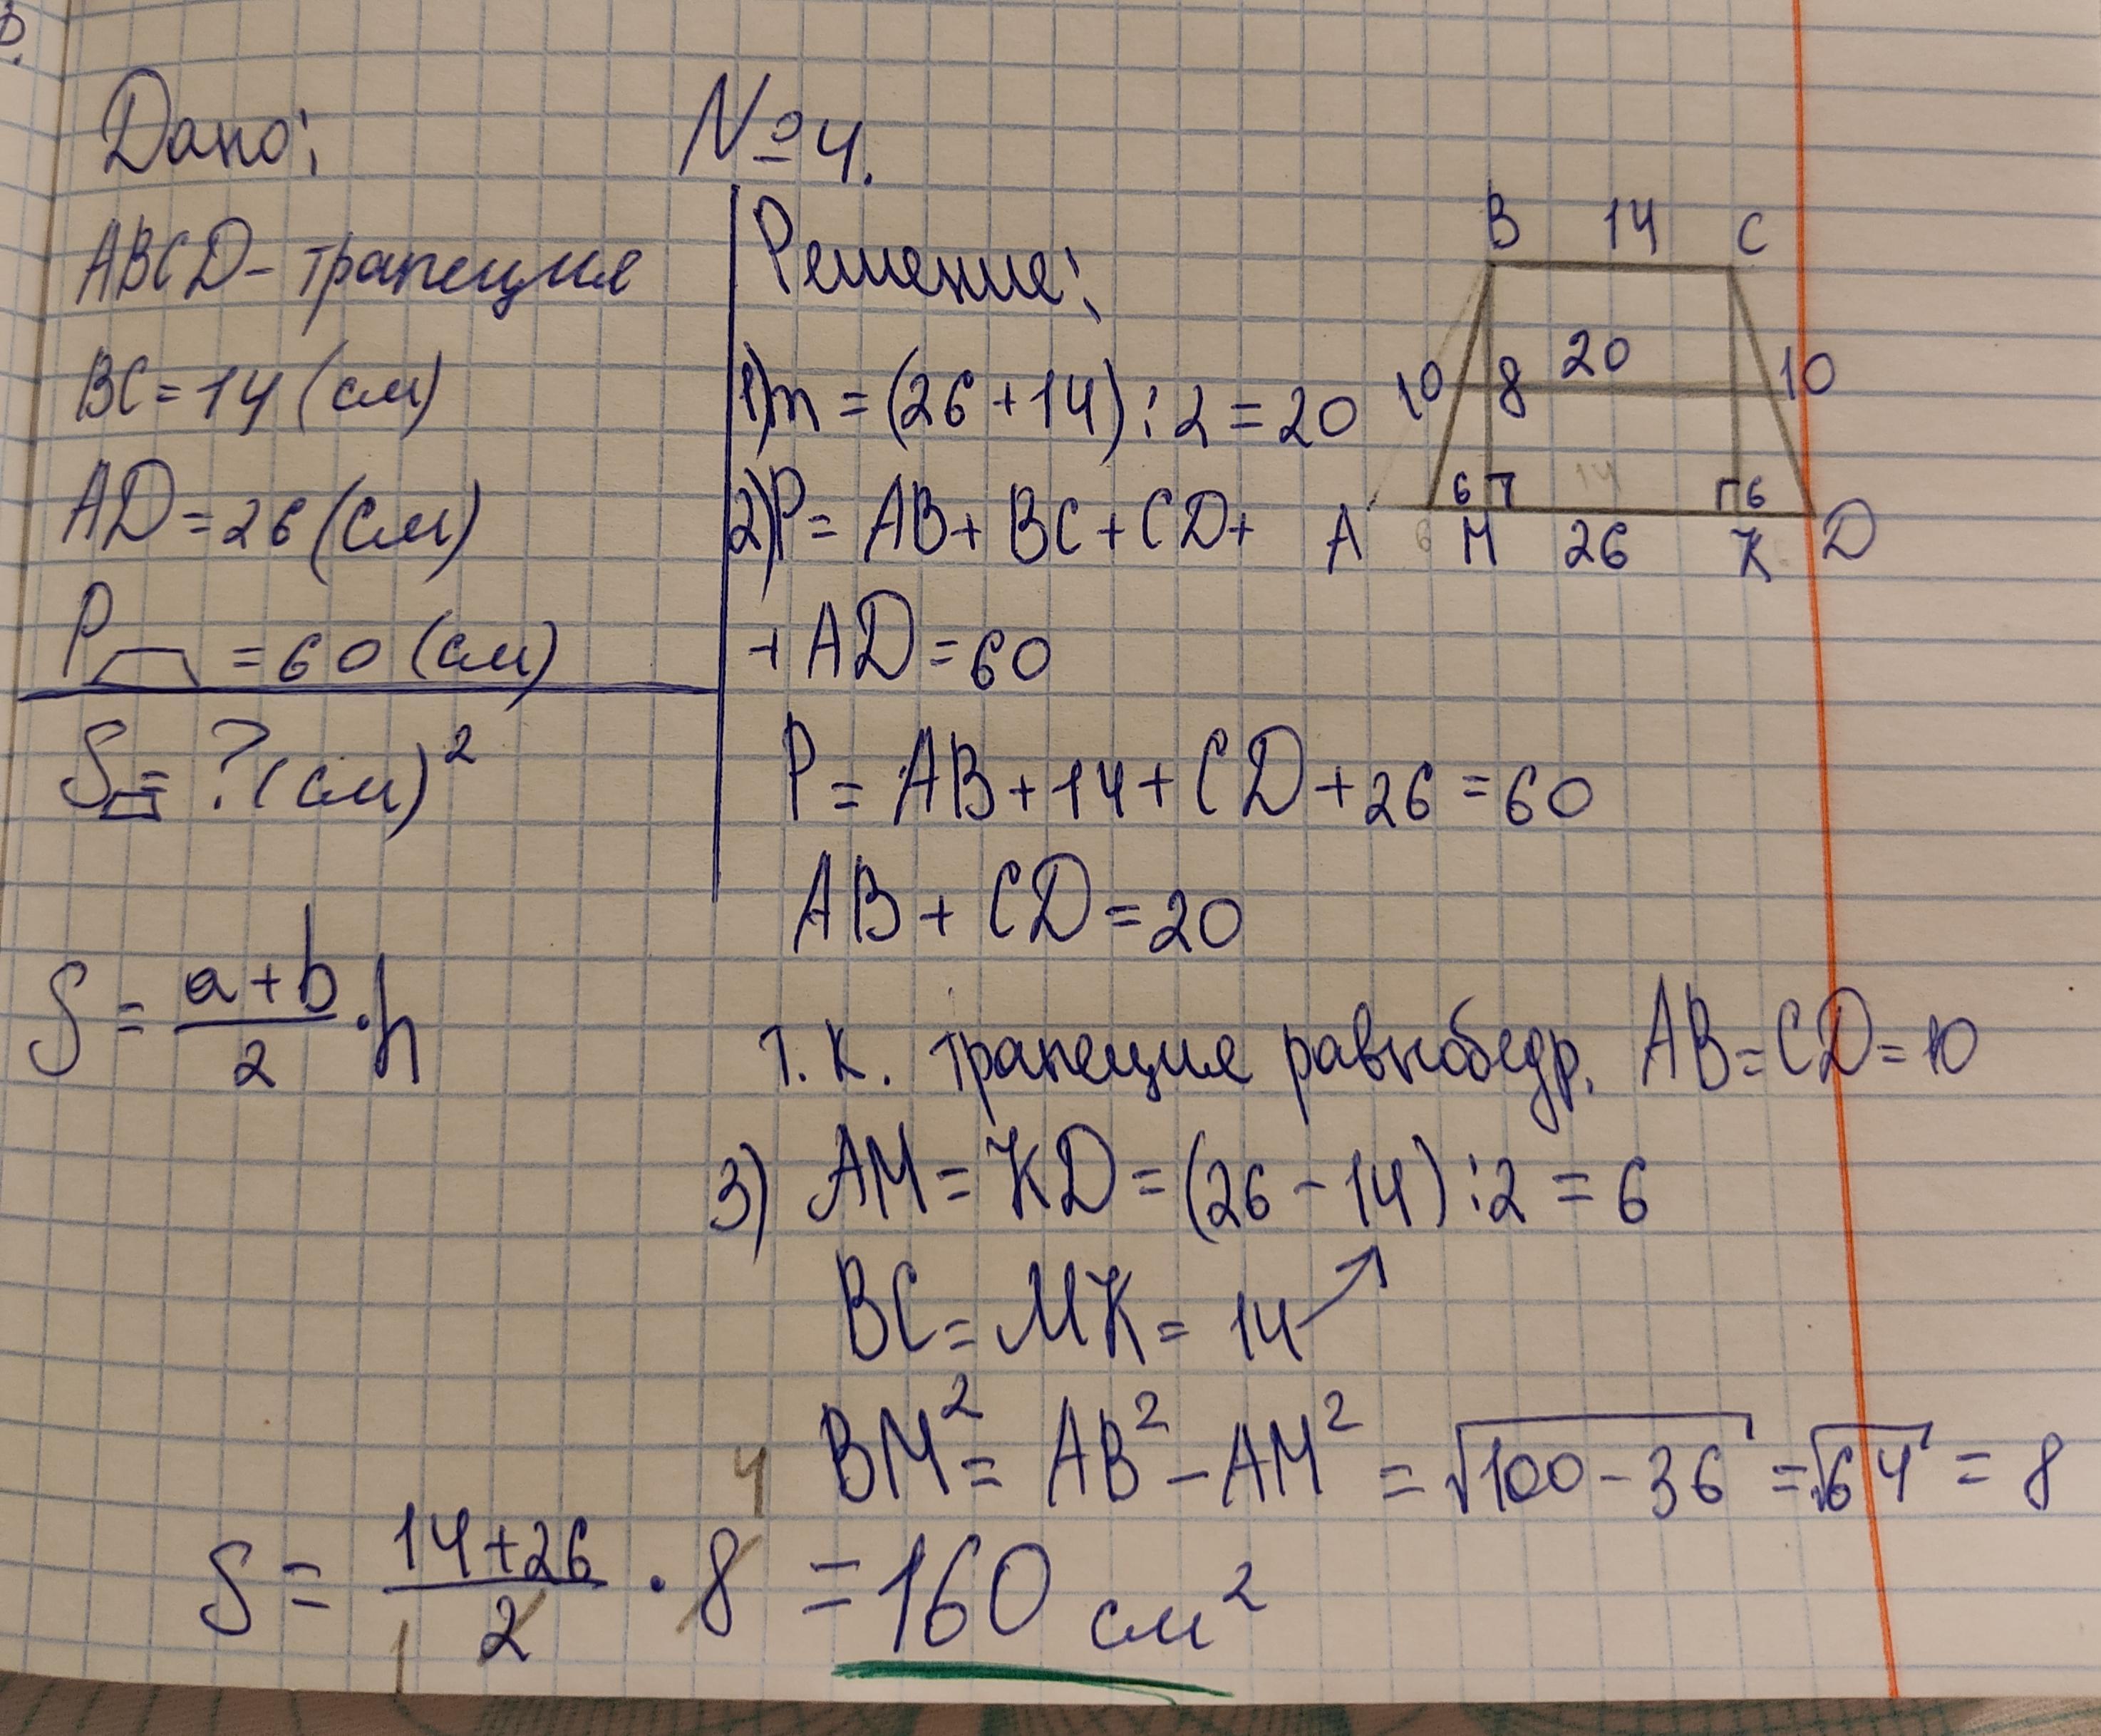 №4.
Дано:
ABCD - трапеция
BC = 14 (см)
AD = 26 (см)
P = 60 (см)
S = ? (см)²
S = (a+b)/2 · h
Решение:
1) m = (26+14) : 2 = 20
2) P = AB + BC + CD +
+ AD = 60
P = AB + 14 + CD + 26 = 60
AB + CD = 20
т.к. трапеция равнобедр. AB = CD = 10
3) AM = KD = (26 - 14) : 2 = 6
BC = MK = 14
BM² = AB² - AM² = √100 - 36 = √64 = 8
S = (14+26)/2 · 8 = 160 см²
4
1
B 14 C
10 8 20 10
6 14 6
A 6 M 26 K D